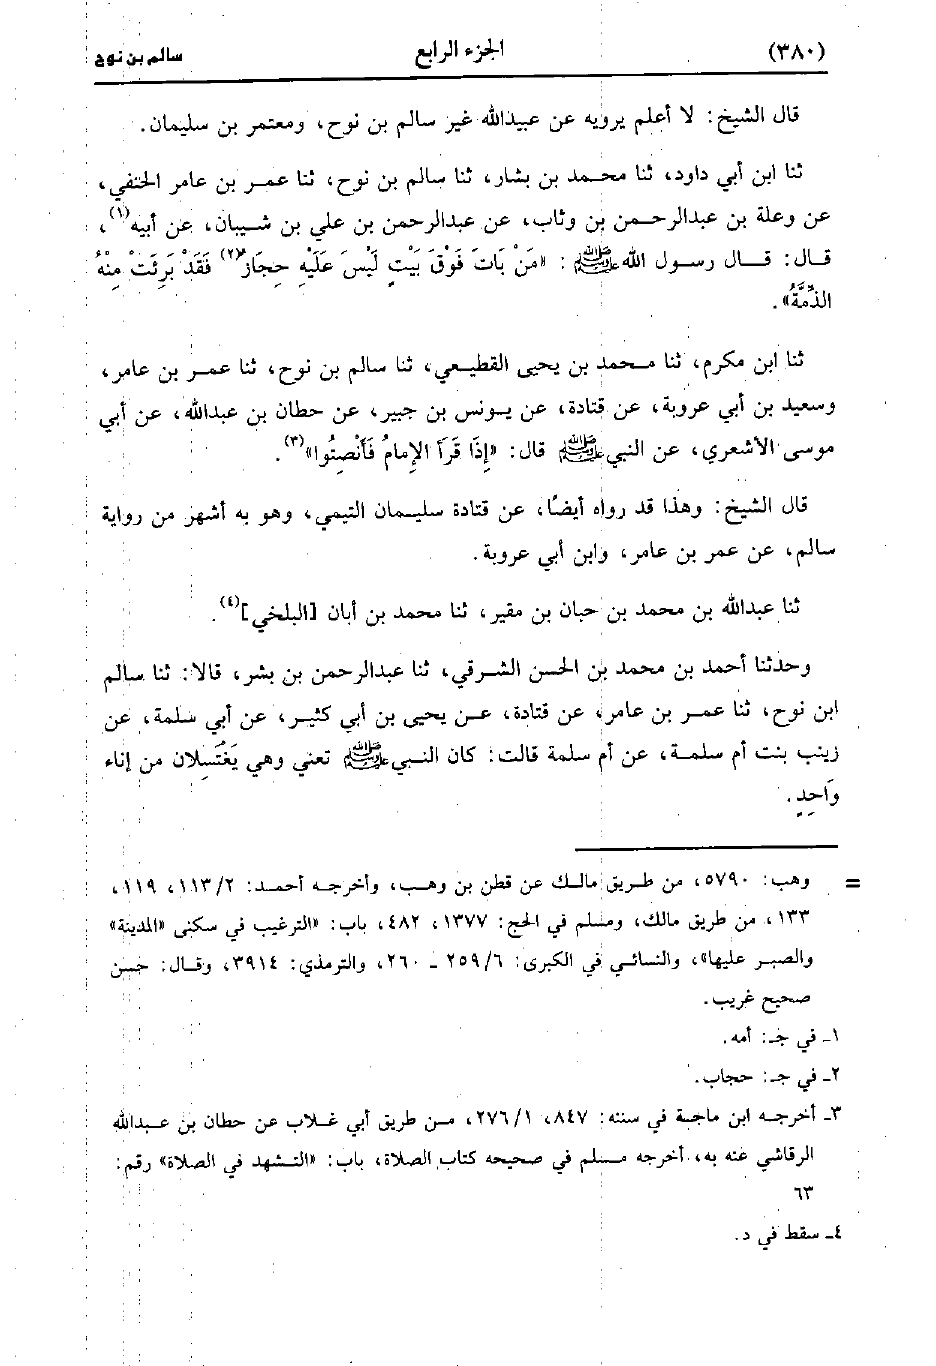 (٣٨٠) الجزء الرابع سالم بن نوح
قال الشيخ: لا أعلم يرويه عن عبيدالله غير سالم بن نوح، ومعتمر بن سليمان.
ثنا ابن أبي داود، ثنا محمد بن بشار، ثنا سالم بن نوح، ثنا عمر بن عامر الحنفي،
عن وعلة بن عبدالرحمن بن وثاب، عن عبدالرحمن بن علي بن شيبان، عن أبيه(١)،
قال: قال رسول الله ﷺ: «مَنْ بَاتَ فَوْقَ بَيْتٍ لَيْسَ عَلَيْهِ حِجَاز(٢) فَقَدْ بَرِئَتْ مِنْهُ
الذِّمَّةُ».
ثنا ابن مكرم، ثنا محمد بن يحيى القطيعي، ثنا سالم بن نوح، ثنا عمر بن عامر،
وسعيد بن أبي عروبة، عن قتادة، عن يونس بن جبير، عن حطان بن عبدالله، عن أبي
موسى الأشعري، عن النبي ﷺ قال: «إِذَا قَرَأَ الإِمامُ فَأَنْصِتُوا»(٣).
قال الشيخ: وهذا قد رواه أيضًا، عن قتادة سليمان التيمي، وهو به أشهر من رواية
سالم، عن عمر بن عامر، وابن أبي عروبة.
ثنا عبدالله بن محمد بن حبان بن مقير، ثنا محمد بن أبان [البلخي](٤).
وحدثنا أحمد بن محمد بن الحسن الشرقي، ثنا عبدالرحمن بن بشر، قالا: ثنا سالم
ابن نوح، ثنا عمر بن عامر، عن قتادة، عن يحيى بن أبي كثير، عن أبي سلمة، عن
زينب بنت أم سلمة، عن أم سلمة قالت: كان النبي ﷺ تعني وهي يَغْتَسِلان من إناء
وَاحِدٍ.
= وهب: ٥٧٩٠، من طريق مالك عن قطن بن وهب، وأخرجه أحمد: ١١٣/٢، ١١٩،
١٣٣، من طريق مالك، ومسلم في الحج: ١٣٧٧، ٤٨٢، باب: «الترغيب في سكنى «المدينة»
والصبر عليها»، والنسائي في الكبرى: ٢٥٩/٦ ـ ٢٦٠، والترمذي: ٣٩١٤، وقال: حسن
صحيح غريب.
١ـ في جـ: أمه.
٢ـ في جـ: حجاب.
٣ـ أخرجه ابن ماجة في سننه: ٨٤٧، ٢٧٦/١، من طريق أبي غلاب عن حطان بن عبدالله
الرقاشي عنه به، أخرجه مسلم في صحيحه كتاب الصلاة، باب: «التشهد في الصلاة» رقم:
٦٣
٤ـ سقط في د.